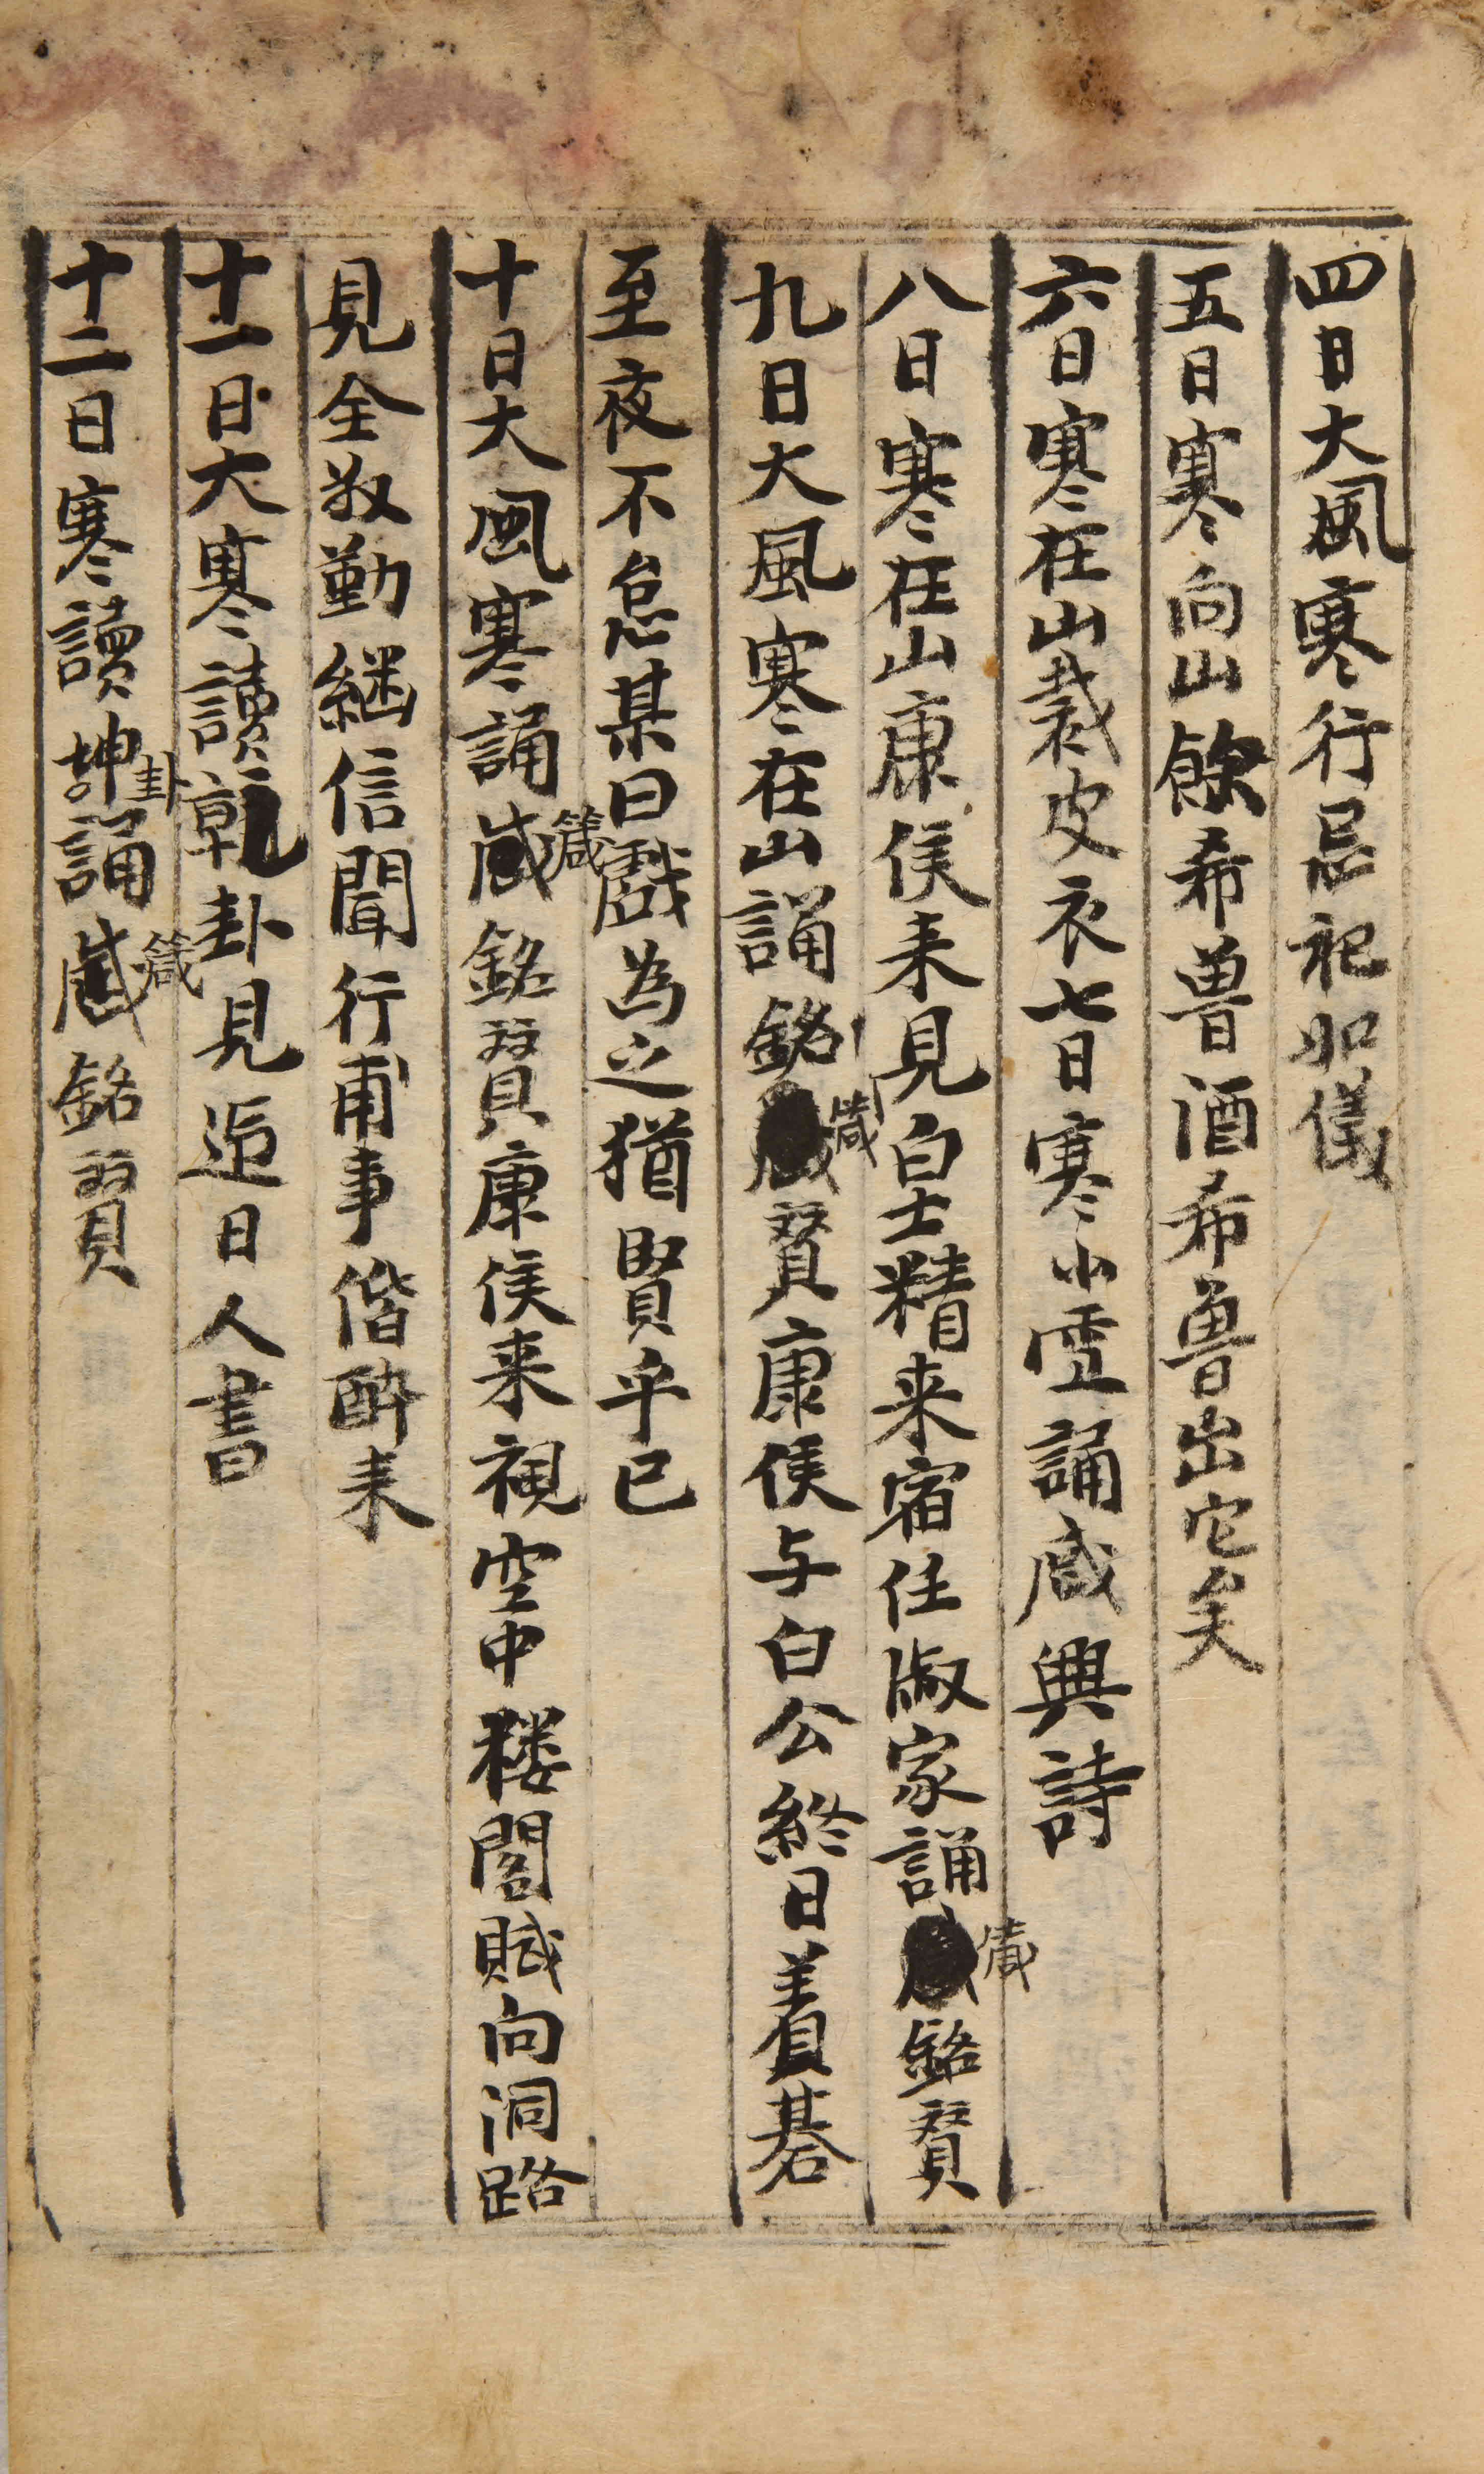 四日大風寒行忌祀如儀
五日寒向山餘希曾酒希魯出它矣
六日寒在山裁皮衣七日寒小雪誦感興詩
八日寒在山康侯来見白士精来宿任淑家誦箴銘賛
九日大風寒在山誦銘箴賛康侯与白公終日着碁
至夜不怠某曰戲為之猶賢乎已
十日大風寒誦箴銘賛康侯来視空中楼閣賦向洞路
見全敬勤継信聞行甫事偕酔来
十一日大寒讀乾卦見近日人書
十二日寒讀坤卦誦箴銘賛